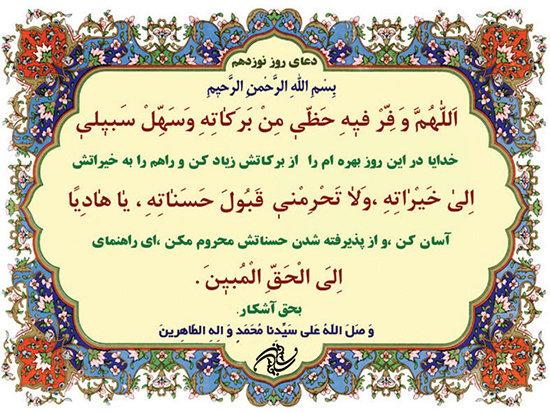 دعای روز نوزدهم
بِسْمِ اللهِ الرَّحْمنِ الرَّحیمِ
اَللّهُمَّ وَفِّرْ فیهِ حَظّی مِنْ بَرَکاتِهِ وَسَهِّلْ سَبیلی
خدایا در این روز بهره ام را از برکاتش زیاد کن و راهم را به خیراتش
اِلیٰ خَیْراتِهِ ،وَلا تَحْرِمْنی قَبُولَ حَسَناتِهِ ، یا هادِیًا
آسان کن ،و از پذیرفته شدن حسناتش محروم مکن ،ای راهنمای
اِلَی الْحَقِّ الْمُبینَ .
بحق آشکار.
وَ صَلَ اللهُ عَلی سَیِّدنا مُحَمَدٍ وَ الِهِ الطّاهِرین